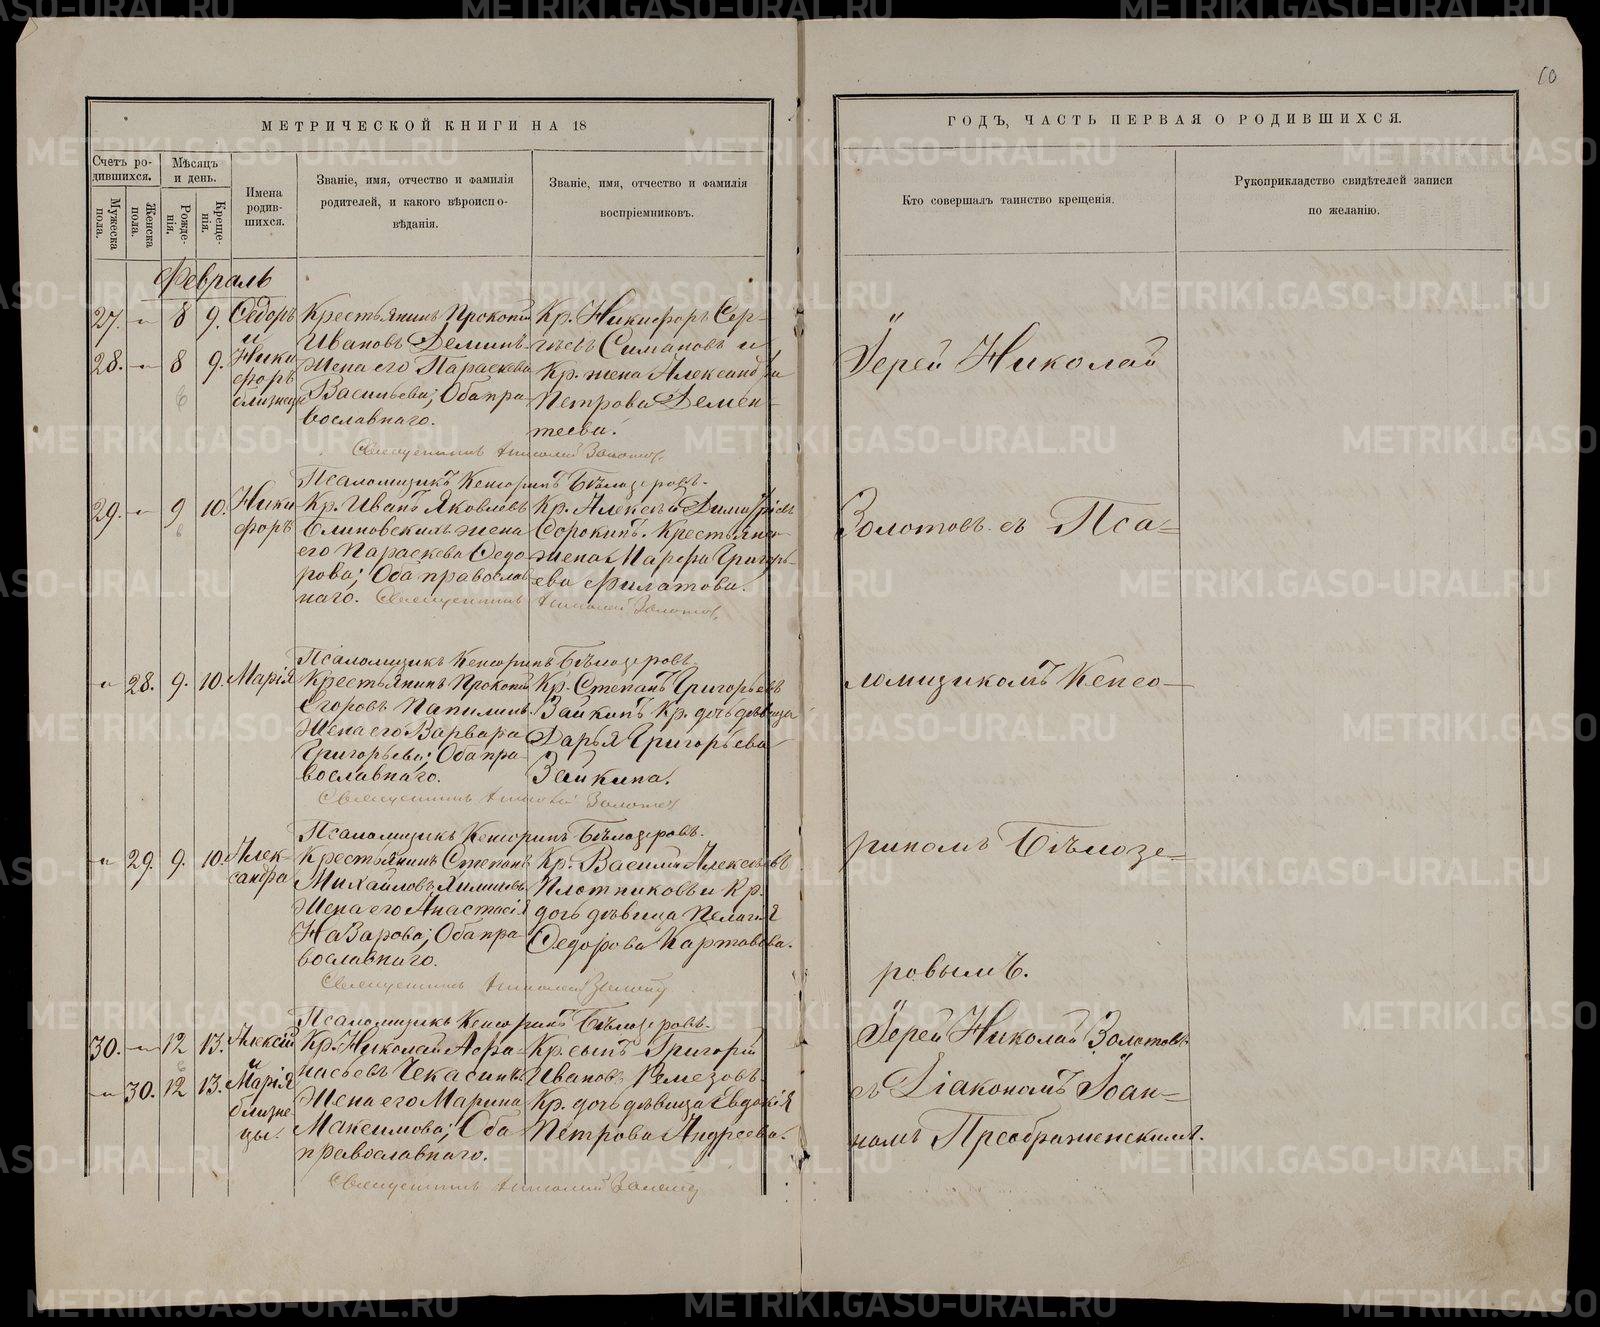 10
МЕТРИЧЕСКОЙ КНИГИ НА 18
ГОДЪ, ЧАСТЬ ПЕРВАЯ О РОДИВШИХСЯ.
Счетъ ро-
дившихся.
Мѣсяцъ
и день.
Мужеска
пола.
Женска
пола.
Рожде-
нія.
Креще-
нія.
Имена
родив-
шихся.
Званіе, имя, отчество и фамилія
родителей, и какого вѣроиспо-
вѣданія.
Званіе, имя, отчество и фамилія
воспріемниковъ.
Кто совершалъ таинство крещенія.
Рукоприкладство свидѣтелей записи
по желанію.
Февраль
27. 8 9. Ѳедоръ
и
28. 8 9. Ники
форъ
близнецы
Крестьянинъ Прокопій
Ивановъ Деминъ
Жена его Параскева
Васильева; Оба пра-
вославнаго.
Кр. Никифоръ Сер-
гѣевъ Симановъ и
Кр. жена Александра
Петрова Демен-
тьева.
Священникъ Николай Золотовъ.
Псаломщикъ Кенсоринъ Бѣлозеровъ.
29. 9 10. Ники
форъ
Кр. Иванъ Яковлевъ
жена
его Параскева Ѳедо-
рова; Оба православ-
наго.
Кр. Алексѣй Димитріевъ
Сорокинъ. Крестьянс.
жена Марфа Григорь-
ева Филатова.
Священникъ Николай Золотовъ.
Псаломщикъ Кенсоринъ Бѣлозеровъ.
28. 9. 10. Марія
Крестьянинъ Прокопій
Егоровъ Папилинъ
Жена его Варвара
Григорьева; Оба пра-
вославнаго.
Кр. Степанъ Григорьевъ
Заикинъ Кр. дочь дѣвица
Дарья Григорьева
Заикина.
Священникъ Николай Золотовъ
Псаломщикъ Кенсоринъ Бѣлозеровъ.
29. 9. 10. Алек-
сандра
Крестьянинъ Степанъ
Михайловъ
Жена его Анастасія
Назарова; Оба пра-
вославнаго.
Кр. Василій Алексѣевъ
Плотниковъ и Кр.
дочь дѣвица Пелагія
Ѳедорова Картавова.
Священникъ Николай Золотовъ
Псаломщикъ Кенсоринъ Бѣлозеровъ.
30. 12 13. Алексій
и
30. 12 13. Марія
близне
цы.
Кр. Николай Афа-
насьевъ Чекасинъ
Жена его Марина
Максимова; Оба
православнаго.
Кр. сынъ Григорій
Ивановъ Ремезовъ.
Кр. дочь дѣвица Евдокія
Петрова Андреева.
Священникъ Николай Золотовъ
Іерей Николай
Золотовъ съ Пса-
ломщикомъ Кенсо-
риномъ Бѣлозе-
ровымъ.
Іерей Николай Золотовъ
съ Діакономъ Іоан-
номъ Преображенскимъ.
METRIKI.GASO-URAL.RU